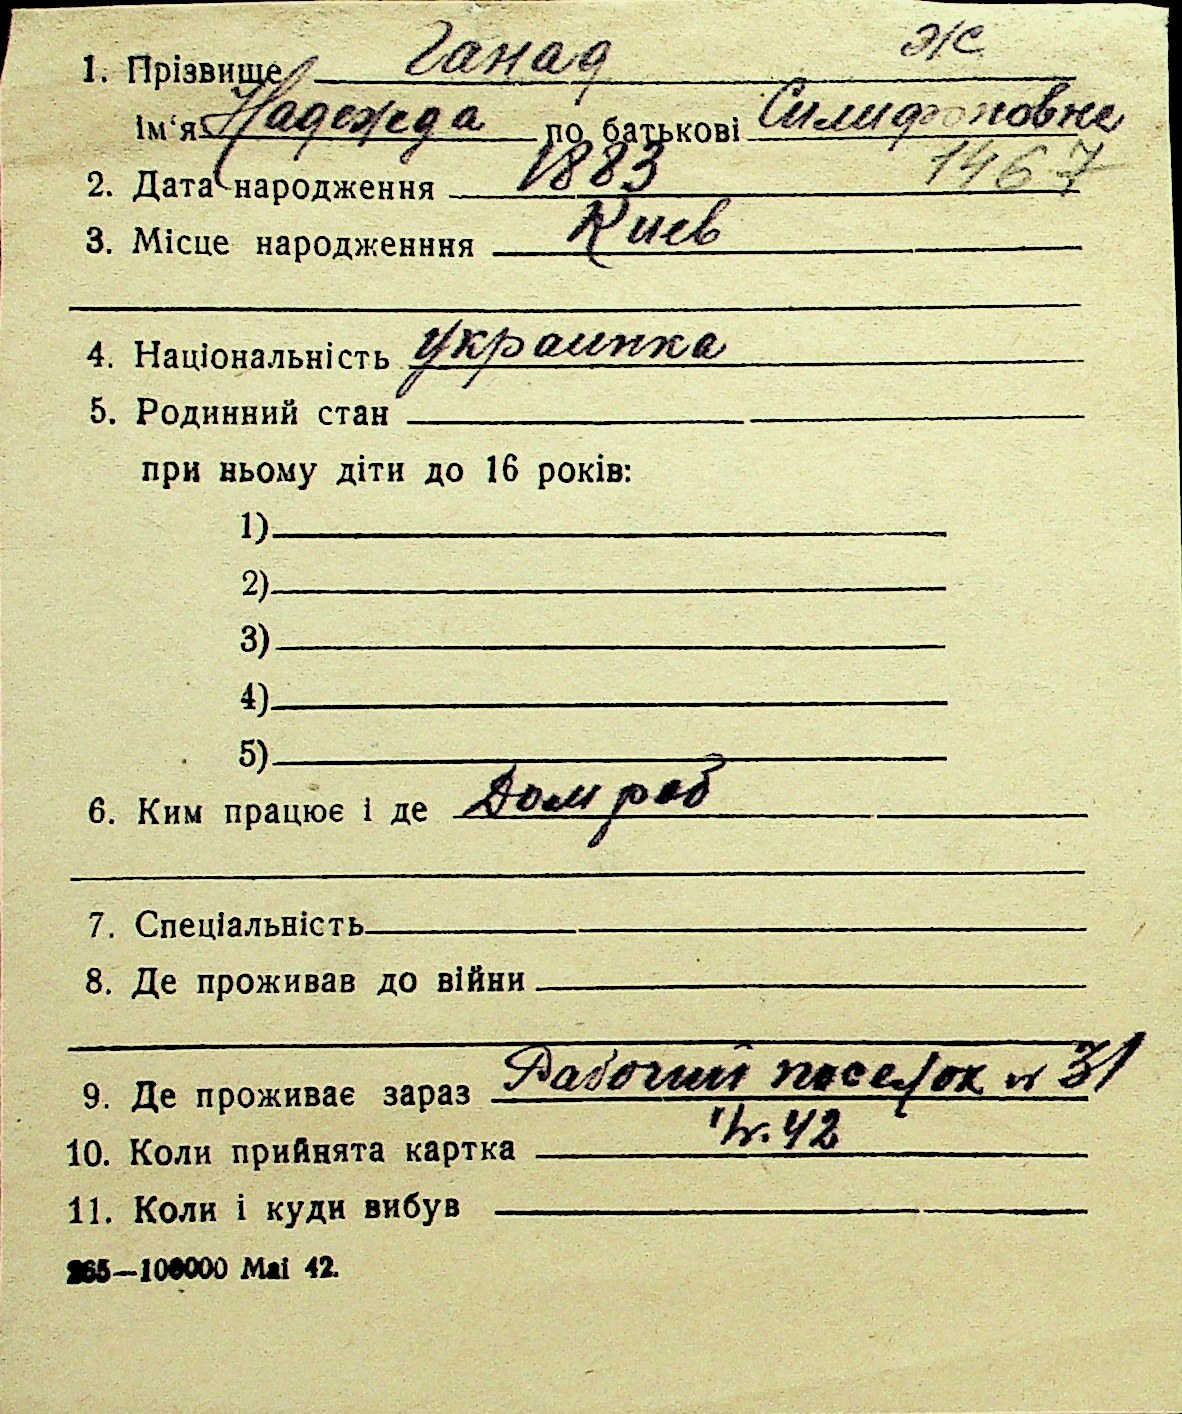 1. Прізвище Ганад ж
Ім'я Надежда по батькові Силифоновне
2. Дата народження 1883 1467
3. Місце народженння Киев
4. Національність украинка
5. Родинний стан
при ньому діти до 16 років:
1)
2)
3)
4)
5)
6. Ким працює і де Дом раб
7. Спеціальність
8. Де проживав до війни
9. Де проживає зараз Рабочий поселок № 31
10. Коли прийнята картка 42
11. Коли і куди вибув
265—100000 Mai 42.